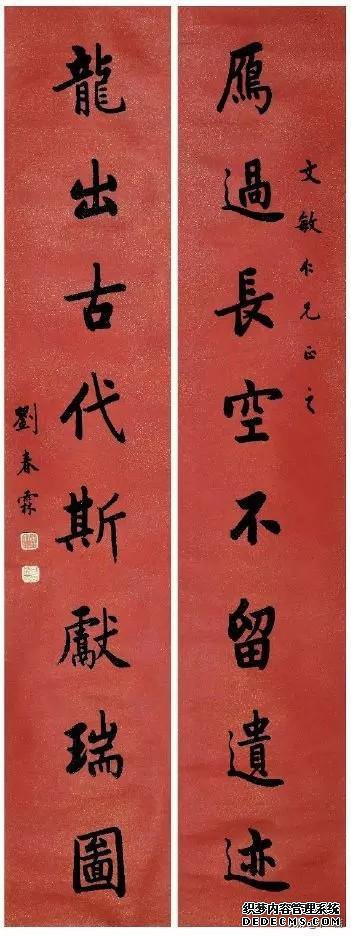 文敏仁兄正之
雁過長空不留遺迹
龍出古代斯獻瑞圖
劉春霖
本文内容由织梦内容管理系统
DEDECMS.COM